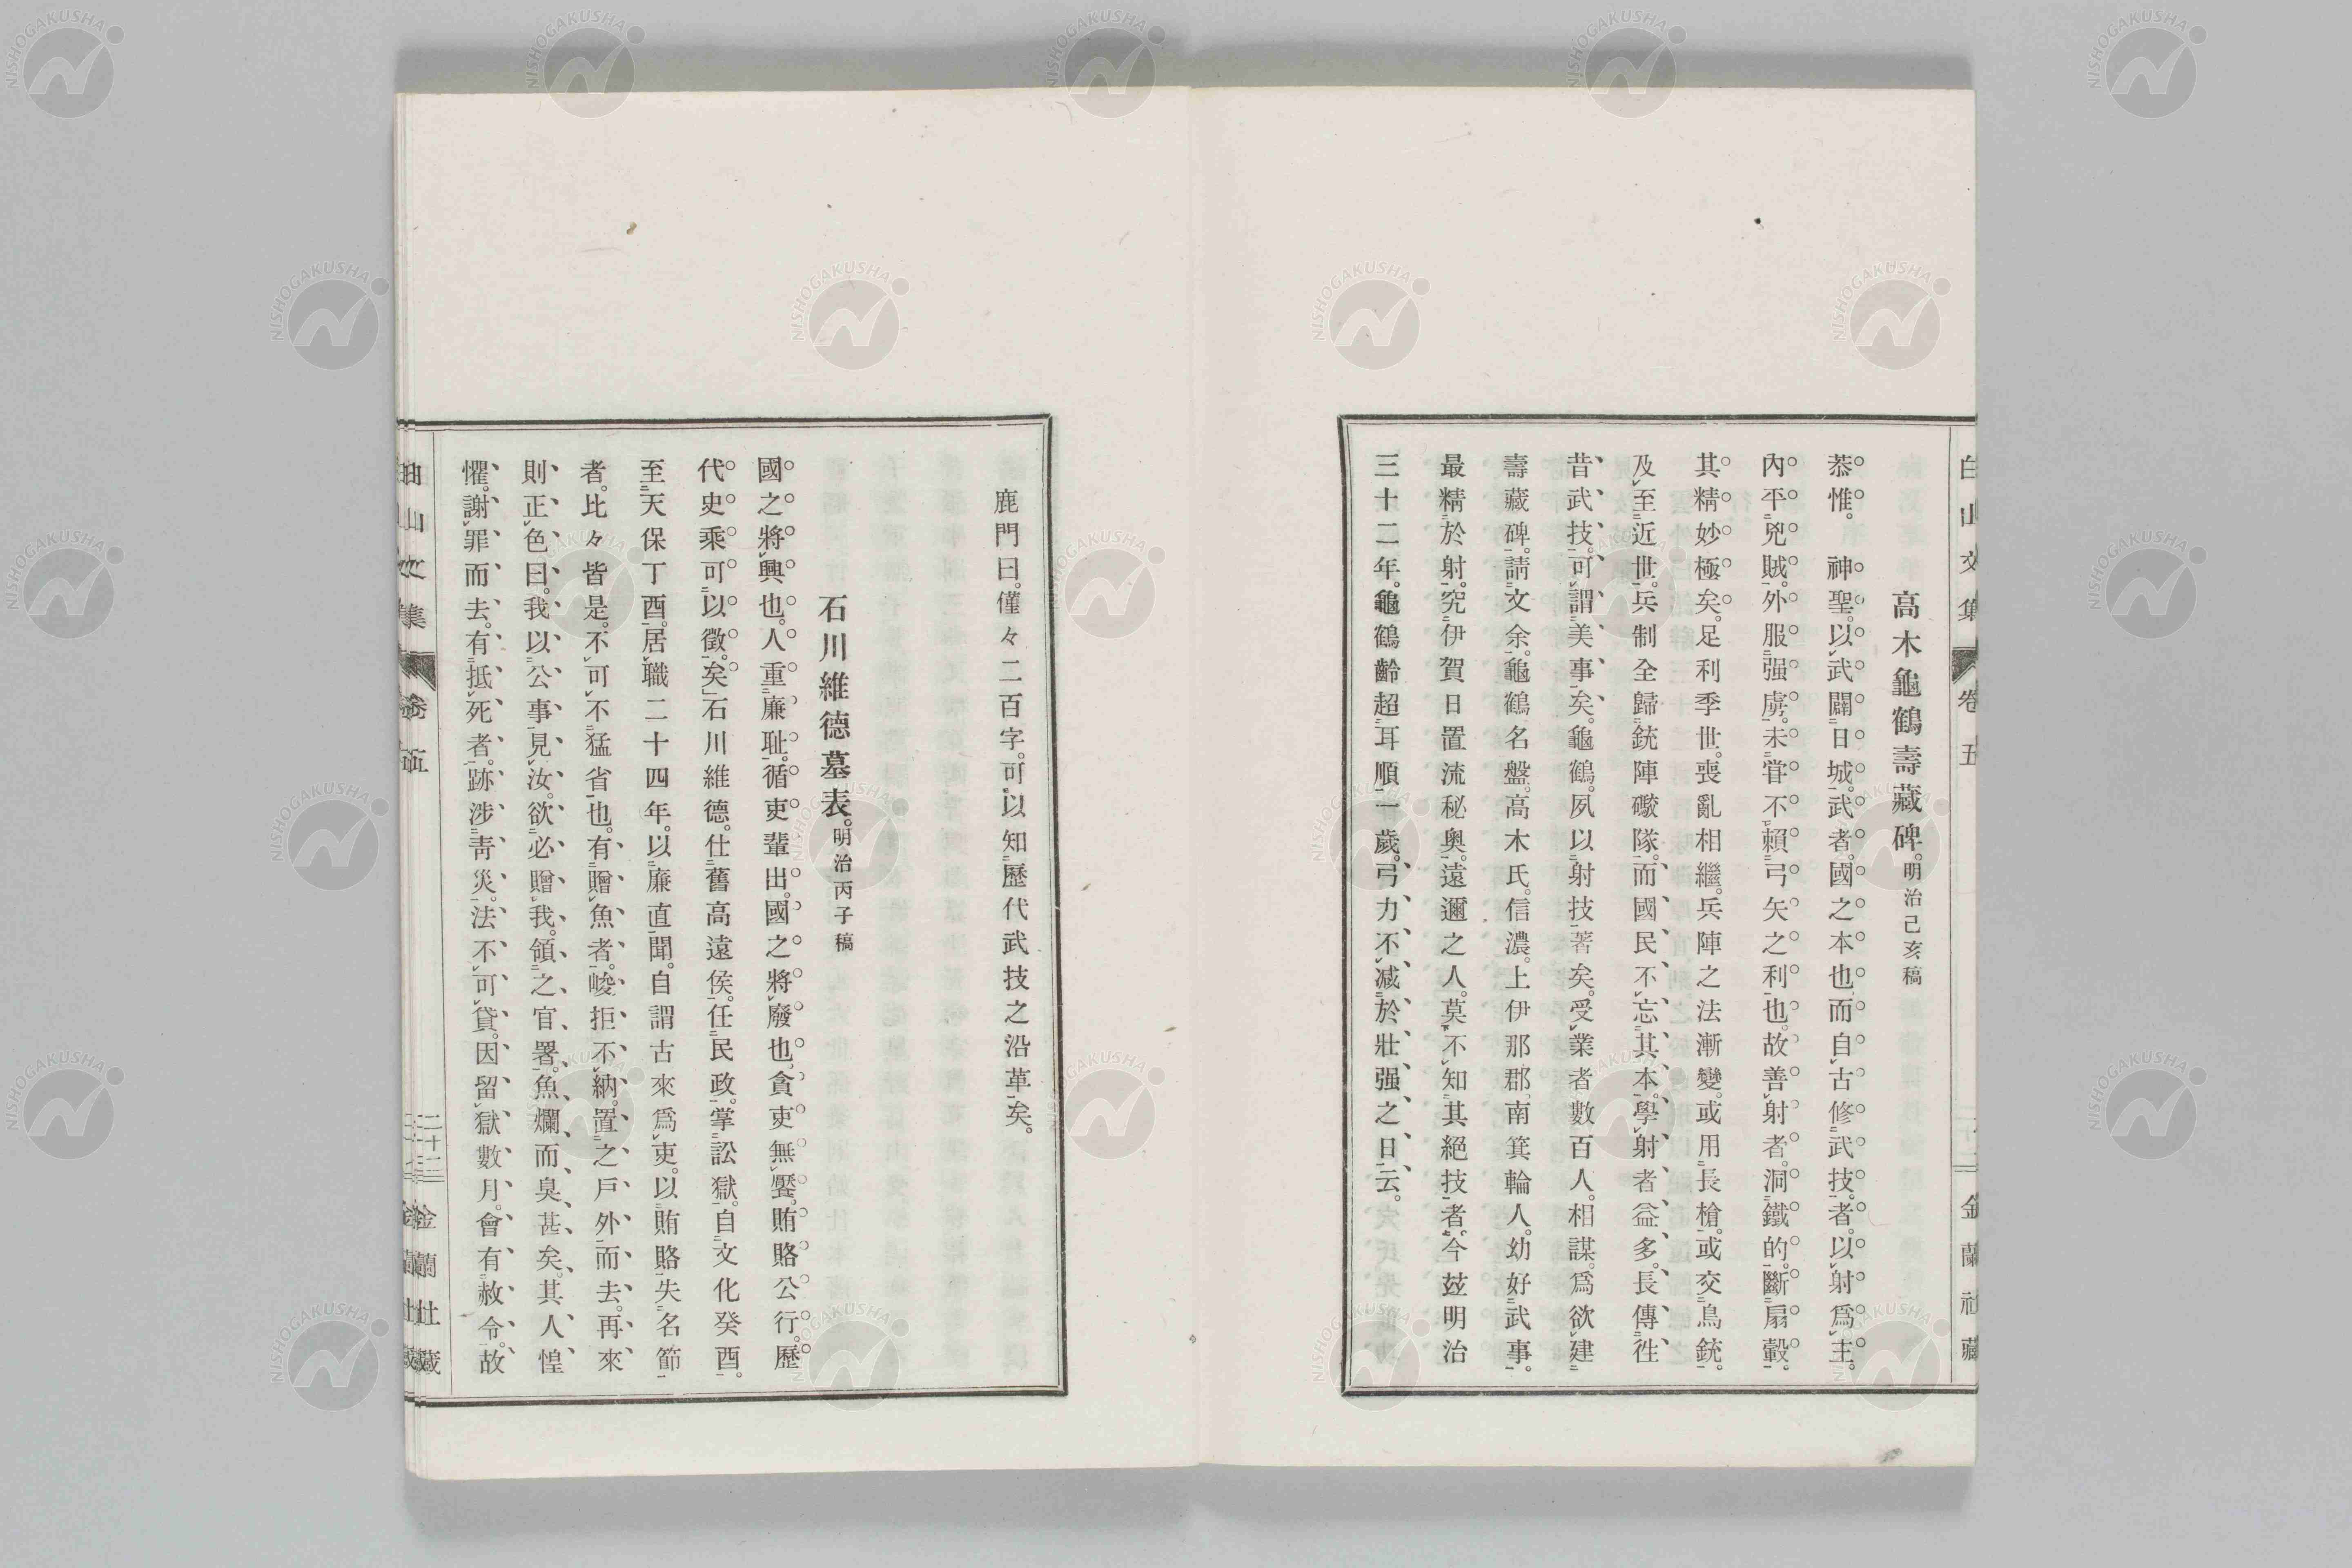 高木龜鶴壽藏碑。明治己亥稿
恭惟。　神聖。以武闢日城。武者。國之本也而自古修武技。者。以射爲主。
內平兇賊。外服强虜。未甞不賴弓矢之利也。故善射者。洞鐵的。斷扇轂。
其精妙極矣。足利季世。喪亂相繼。兵陣之法漸變。或用長槍。或交鳥銃。
及至近世。兵制全歸銃陣礮隊。而國民不忘其本。學射者益多。長傳徃
昔武技。可謂美事矣。龜鶴。夙以射技著矣。受業者數百人。相謀。爲欲建
壽藏碑。請文余。龜鶴名盤。高木氏。信濃。上伊那郡。南箕輪人。幼好武事。
最精於射。究伊賀日置流秘奧。遠邇之人。莫不知其絕技者。今玆明治
三十二年。龜鶴齡超耳順一歲。弓力不減於壯强之日云。
鹿門曰。僅々二百字。可以知歷代武技之沿革矣。
石川維德墓表。明治丙子稿
國之將興也。人重廉恥。循吏輩出。國之將廢也。貪吏無饜。賄賂公行。歷
代史乘可以徵矣。石川維德。仕舊高遠侯。任民政。掌訟獄。自文化癸酉。
至天保丁酉。居職二十四年。以廉直聞。自謂古來爲吏。以賄賂失名節
者。比々皆是。不可不猛省也。有贈魚者。峻拒不納。置之戶外而去。再來
則正色曰。我以公事見汝。欲必贈我。領之官署。魚爛而臭甚矣。其人惶
懼。謝罪而去。有抵死者。跡涉靑災。法不可貸。因留獄數月。會有赦令。故
白山文集
卷五
金蘭社藏
二十二